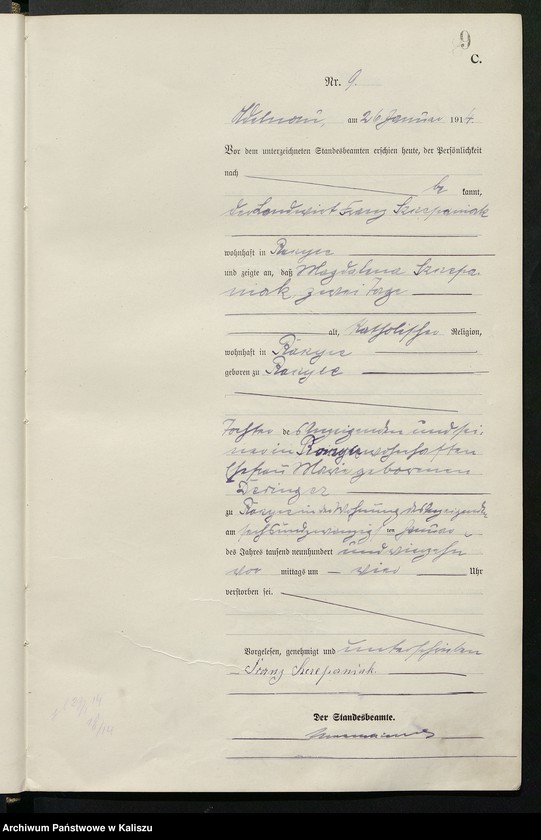 9
C.
Nr. 9.
Adelnau, am 26 Januar 1914.
Vor dem unterzeichneten Standesbeamten erschien heute, der Persönlichkeit
nach
be kannt,
der Landwirt Franz Szczepaniak
wohnhaft in
und zeigte an, daß Magdalena Szczepa
niak, zwei Tage
alt, katholischer Religion,
wohnhaft in
geboren zu
Tochter des Anzeigenden und sei
ner in wohnhaften
Ehefrau Marie geborenen
Deringer
zu in der Wohnung des Anzeigenden
am sechsundzwanzigsten Januar
des Jahres tausend neunhundert und vierzehn
vor mittags um vier Uhr
verstorben sei.
Vorgelesen, genehmigt und unterschrieben
Franz Szczepaniak
Der Standesbeamte.
Archiwum Państwowe w Kaliszu